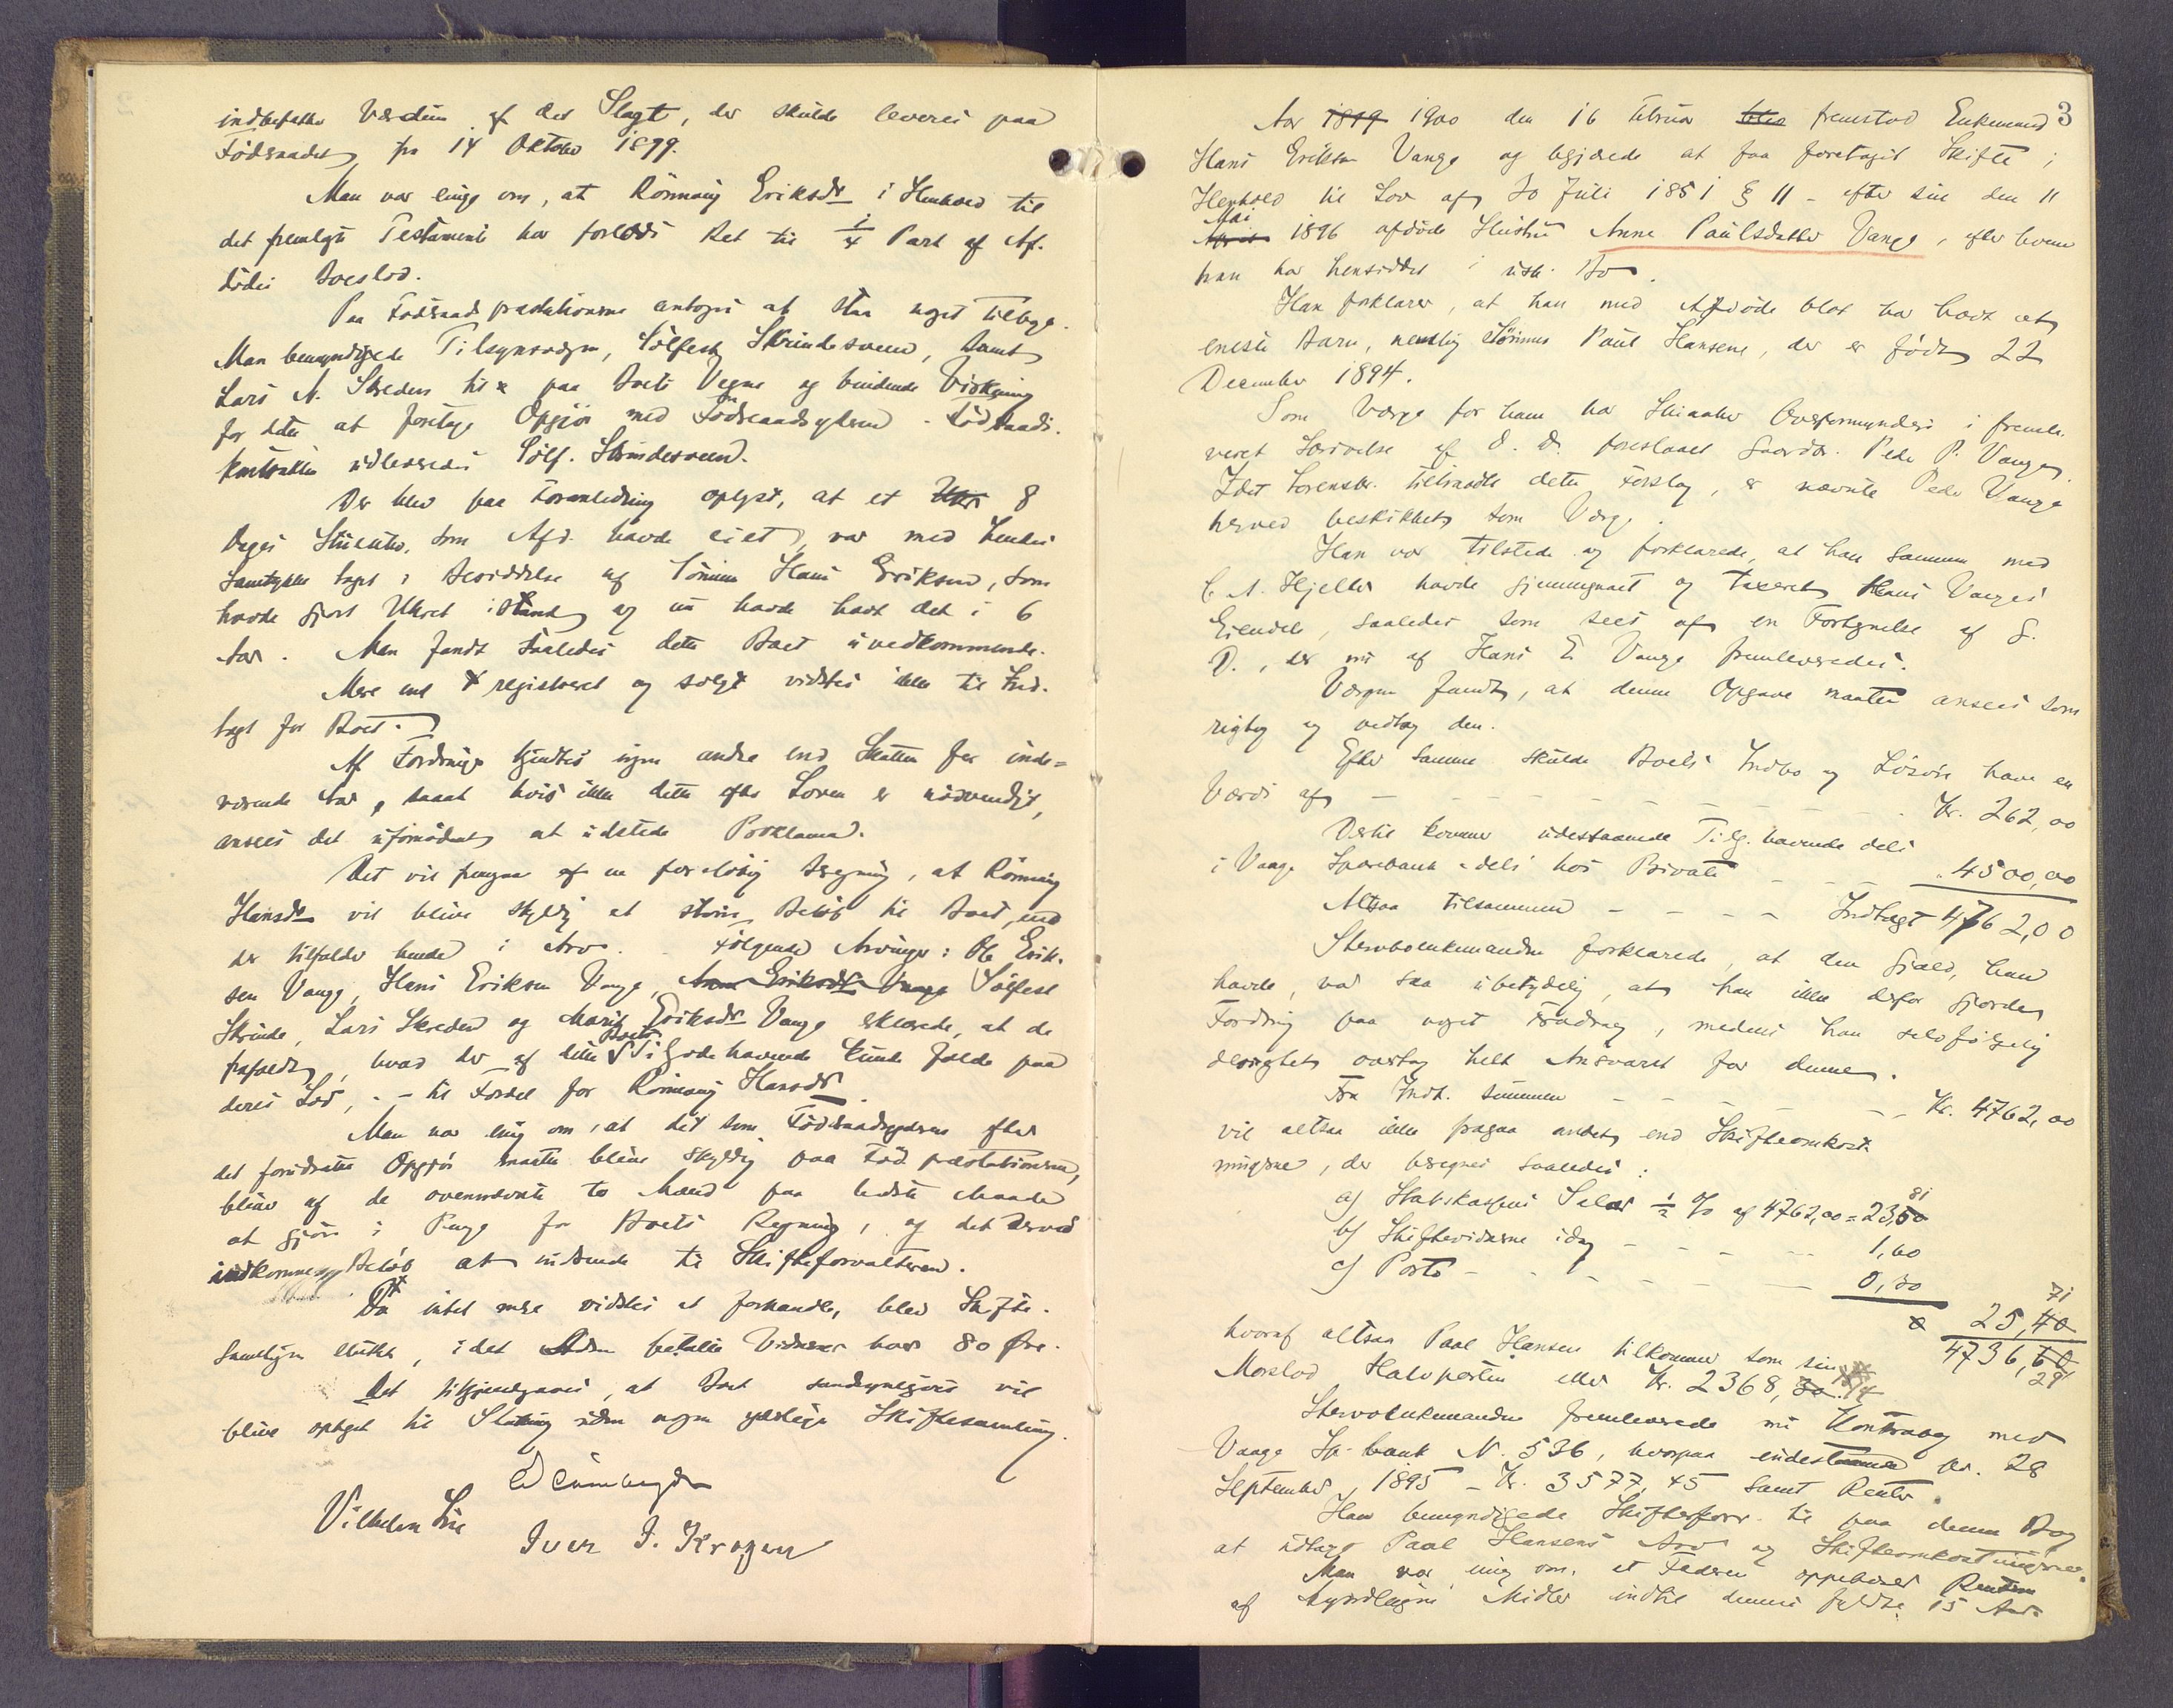 indbefatter Værdien af det Slagt, der skulde leveres paa
Födraadet fra 14 Oktober 1899.
Man var enige om, at Rönnaug Eriksdr i Henhold til
det fremlagte Testament har forlods Ret til 1/4 Part af Af-
dödes Boeslod.
Paa Födraadspræstationerne antoges at staa noget tilbage.
Man bemyndigede Tilsynsværgen, Sölfest Skrindesveen, samt
Lars N. Skreden til paa Boets Vegne og bindende Virkning
for dette at foretage Opgjör med Födraadsyderen - Födraads-
kontrakten udleveredes Sölf. Skrindesveen.
Der blev paa Foranledning oplyst, at et 8
Dages Stueuhr, som Afd. havde eiet, var med hendes
Samtykke taget i Besiddelse af Sönnen Hans Eriksen, som
havde gjort Uhret istand og nu havde havt det i 6
Aar. Man fandt saaledes dette Boet uvedkommende.
Mere end registreret og solgt vidstes ikke til Ind-
tægt for Boet.
Af Fordringer kjendtes ingen andre end Skatten for inde-
værende Aar, saaat hvis ikke dette efter Loven er nödvendigt,
ansees det ufornödent at udstede Proklama.
Det vil fremgaa af en forelöbig Beregning, at Rönnaug
Hansdr vil blive skyldig et större Belöb til Boet, end
der tilfalder hende i Arv. Følgende Arvinger: Ole Erik-
sen Vange, Hans Eriksen Vange, Anne Eriksdr Vange Sölfest
Skrinde, Lars Skreden og Marit Eriksdr Vange erklærede, at de
frafaldt, hvad der af dette Boets Tilgodehavende kunde falde paa
deres Lod, - - til Fordel for Rönnaug Hansdr.
Man var enig om, at det som Födraadsyderen efter
det forudsatte Opgjör maatte blive skyldig paa Födpræstationerne,
bliver af de ovennævnte to Mænd paa bedste Maade
at gjöre i Penge for Boets Regning, og det derved
indkomne Belöb at indsende til Skifteforvalteren.
Da intet mere vidstes at forhandle, blev Skifte-
samlingen sluttet, idet betalte Vidnerne hver 80 Øre.
Det tilkjendegaves, at Boet sandsynligvis vil
blive optaget til Slutning uden nogen yderligere Skiftesamling.
Vilhelm
Iver I. Krogen
3
Aar 1899 1900 den 16 Februar blev fremstod Enkemand
Hans Eriksen Vange og begjærede at faa foretaget Skifte i
Henhold til Lov af 30 Juli 1851 § 11 - efter sin den 11
Mai
April 1896 afdöde Hustru Anne Paulsdatter Vange, efter hvem
han har hensiddet i usk. Bo.
Han forklarer, at han med Afdöde blot har havt et
eneste Barn, nemlig Sönnen Paul Hansen, der er födt 22
December 1894.
Som Værge for ham har Skiaaker Overformynderi i fremle-
veret Skrivelse af D. D. foreslaaet Gaardbr. Peder P. Vange.
Idet Sorenskr. tiltraadte dette Forslag, er nævnte Peder Vange
herved beskikket som Værge.
Han var tilstede og forklarede, at han sammen med
C. A. Hjelter havde gjennemgaaet og taxeret Hans Vanges
Eiendele, saaledes som sees af en Fortegnelse af G.
D., der nu af Hans E. Vange fremleveredes.
Værgen fandt, at denne Opgave maatte ansees som
rigtig og vedtog den.
Efter samme skulde Boets Indbo og Lösöre have en
Værdi af - - - - - - - - - - Kr. 262,00
Dertil kommer udestaaende Tilg. havende dels
i Vaage Sparebank - dels hos Private - - - - 4500,00
Altsaa tilsammen - - - - Indtægt 4762,00
Stervboenkemanden forklarede, at den Gjæld, han
havde, var saa ubetydelig, at han ikke derfor gjorde
Fordring paa noget Fradrag, medens han selvfölgelig
desuagtet overtog helt Ansvaret for denne.
Fra Indt. summen - - - - - - Kr. 4762,00
vil altsaa ikke fragaa andet end Skifteomkost-
ningerne, der beregnes saaledes:
a) Statskassens Salær 1/2 % af 4762,00 = 23,50 81
b) Skiftevidnerne idag - - - - 1,60
c) Porto - - - - - - 0,30
25,40 71
4736,60 29
hvoraf altsaa Paal Hansen tilkommer som sin
Morslod Halvparten eller Kr. 2368,30 14
Stervboenkemanden fremleverede nu Kontrabog med
Vaage Sp.bank N. 536, hvorpaa indestaaende pr. 28
September 1895 - Kr. 3577,45 samt Renter.
Han bemyndigede Skifteforv. til paa denne Bog
at udtage Paal Hansens Arv og Skifteomkostningerne.
Man var enig om, at Faderen oppebærer Renten
af Myndlingens Midler indtil dennes fyldte 15 Aar